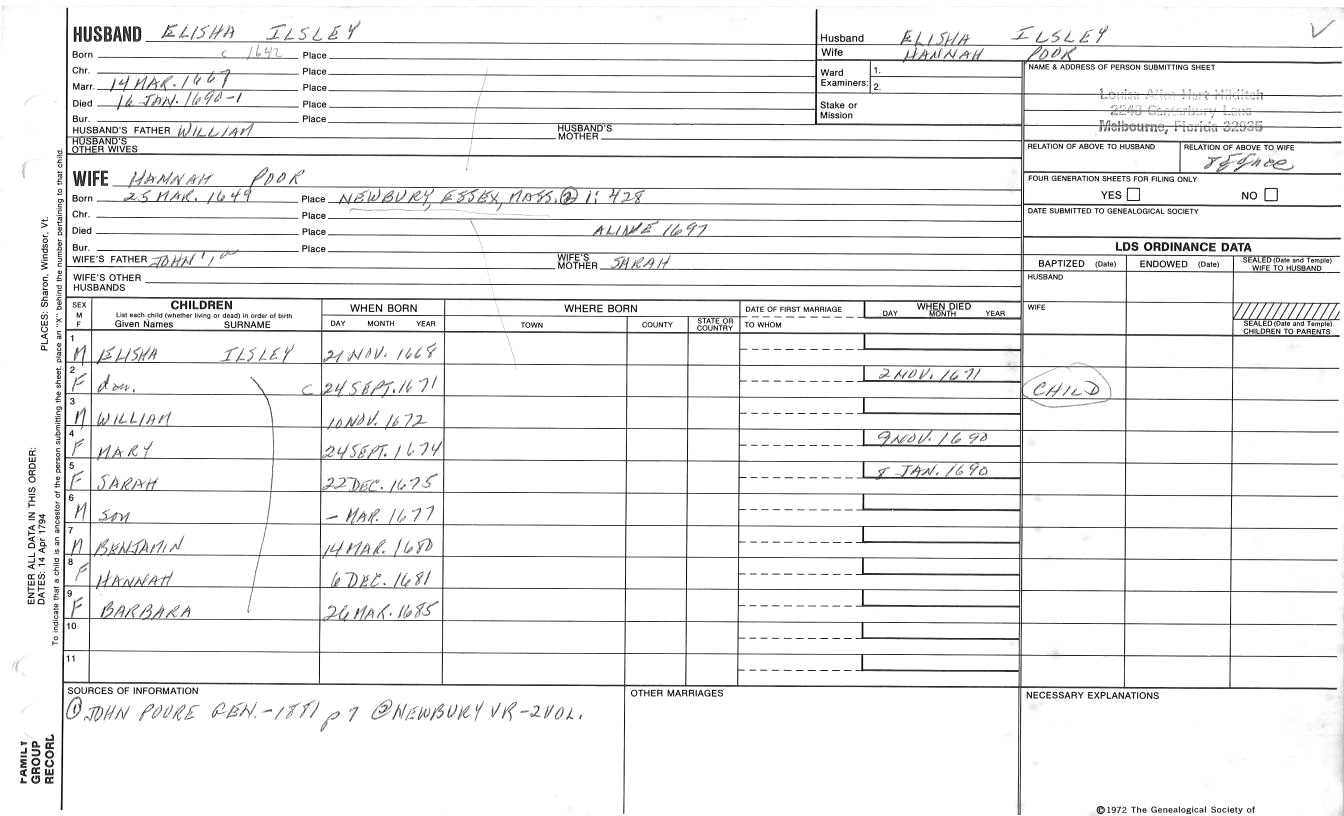 HUSBAND ELISHA ILSLEY
Born c 1642 Place
Chr. Place
Marr. 14 MAR. 1667 Place
Died 16 JAN. 1690-1 Place
Bur. Place
HUSBAND'S FATHER WILLIAM HUSBAND'S MOTHER
HUSBAND'S OTHER WIVES
Husband ELISHA ILSLEY
Wife HANNAH POOR
Ward Examiners: 1.
2.
Stake or Mission
NAME & ADDRESS OF PERSON SUBMITTING SHEET
Melbourne, Florida 32935
RELATION OF ABOVE TO HUSBAND RELATION OF ABOVE TO WIFE
WIFE HANNAH POOR
Born 25 MAR. 1649 Place NEWBURY, ESSEX, MASS. ② 1: 428
Chr. Place
Died Place ALIVE 1697
Bur. Place
WIFE'S FATHER JOHN WIFE'S MOTHER SARAH
WIFE'S OTHER HUSBANDS
FOUR GENERATION SHEETS FOR FILING ONLY:
YES NO
DATE SUBMITTED TO GENEALOGICAL SOCIETY
LDS ORDINANCE DATA
BAPTIZED (Date) ENDOWED (Date) SEALED (Date and Temple) WIFE TO HUSBAND
HUSBAND
WIFE
SEALED (Date and Temple) CHILDREN TO PARENTS
SEX M F
CHILDREN
List each child (whether living or dead) in order of birth
Given Names SURNAME
WHEN BORN
DAY MONTH YEAR
WHERE BORN
TOWN COUNTY STATE OR COUNTRY
DATE OF FIRST MARRIAGE
TO WHOM
WHEN DIED
DAY MONTH YEAR
1 M ELISHA ILSLEY 21 NOV. 1668
2 F dau. C 24 SEPT. 1671 2 NOV. 1671 CHILD
3 M WILLIAM 10 NOV. 1672
4 F MARY 24 SEPT. 1674 9 NOV. 1690
5 F SARAH 22 DEC. 1675 8 JAN. 1690
6 M SON – MAR. 1677
7 M BENJAMIN 14 MAR. 1680
8 F HANNAH 6 DEC. 1681
9 F BARBARA 26 MAR. 1685
10
11
SOURCES OF INFORMATION
① JOHN POORE GEN. - 1881 p 7 ② NEWBURY VR - 2 VOL.
OTHER MARRIAGES
NECESSARY EXPLANATIONS
©1972 The Genealogical Society of
PLACES: Sharon, Windsor, Vt.
To indicate that a child is an ancestor of the person submitting the sheet, place an "X" behind the number pertaining to that child.
ENTER ALL DATA IN THIS ORDER:
DATES: 14 Apr 1794
FAMILY GROUP RECORD